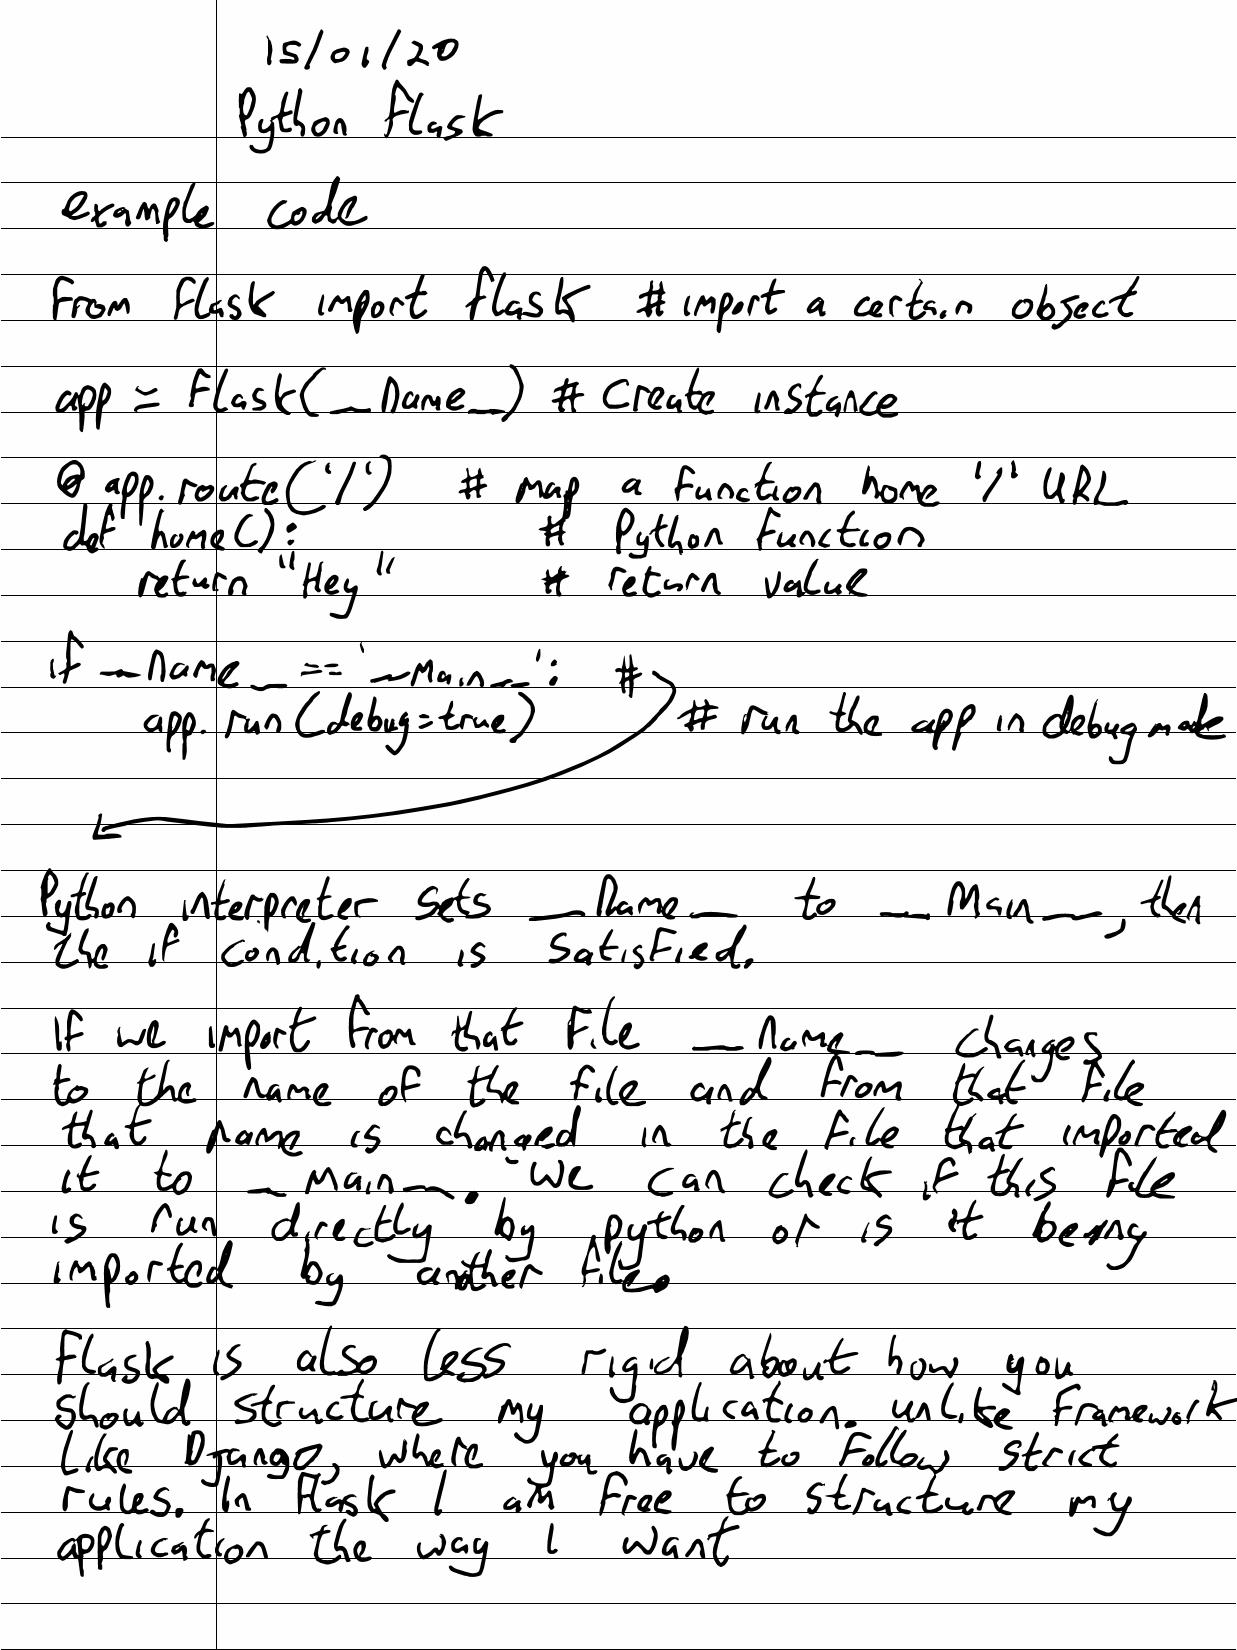 15/01/20
Python Flask
example code
From flask import flask # import a certain object
app = Flask(__name__) # Create instance
@app.route('/') # map a function home '/' URL
def home(): # Python Function
return "Hey" # return value
if __name__ == '__main__': #
app.run(debug=true) # run the app in debug mode
Python interpreter sets __name__ to __Main__, then
the if condition is satisfied.
If we import from that file __name__ changes
to the name of the file and from that file
that name is changed in the file that imported
it to __main__. We can check if this file
is run directly by python or is it being
imported by another file.
Flask is also less rigid about how you
should structure my application. unlike framework
like Django, where you have to follow strict
rules. In Flask I am free to structure my
application the way I want